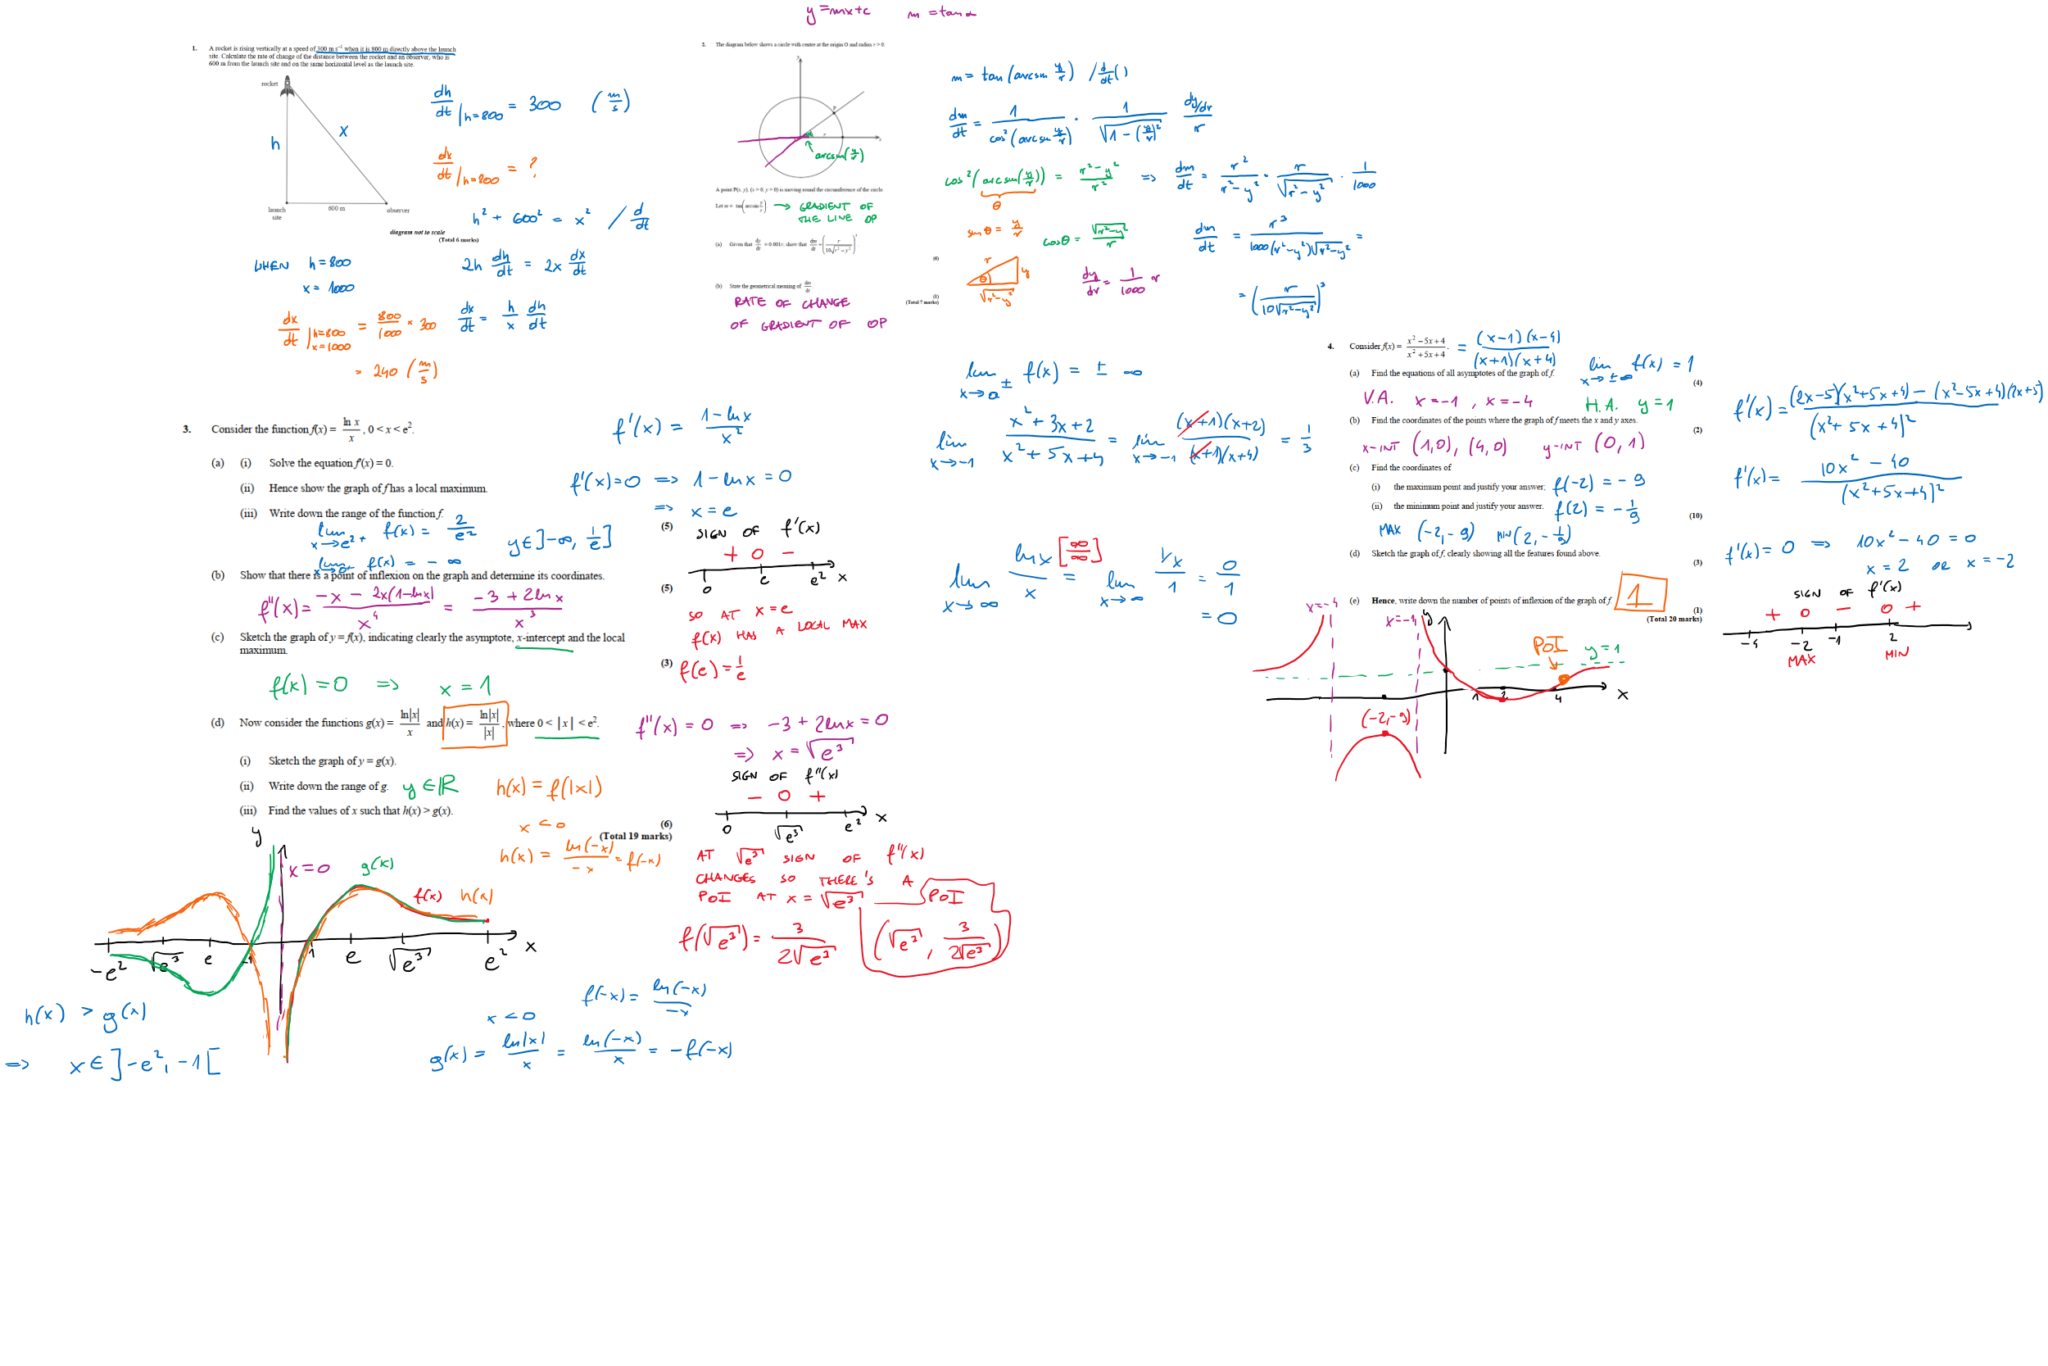 y = mx+c    m = tan α
1. A rocket is rising vertically at a speed of 300 m s⁻¹ when it is 800 m directly above the launch
site. Calculate the rate of change of the distance between the rocket and an observer, who is
600 m from the launch site and on the same horizontal level as the launch site.
rocket
h
x
launch site
600 m
observer
diagram not to scale
(Total 6 marks)
dh/dt |h=800 = 300 (m/s)
dx/dt |h=800 = ?
h² + 600² = x² / d/dt
2h dh/dt = 2x dx/dt
dx/dt = h/x dh/dt
WHEN h = 800
x = 1000
dx/dt |h=800 x=1000 = 800/1000 × 300
= 240 (m/s)
2. The diagram below shows a circle with centre at the origin O and radius r > 0.
arcsin(y/r)
A point P(x, y), (x > 0, y > 0) is moving round the circumference of the circle.
Let m = tan(arcsin y/r) → GRADIENT OF
THE LINE OP
(a) Given that dy/dt = 0.001r, show that dm/dt = (r/(10√(r²−y²)))³
(6)
(b) State the geometrical meaning of dm/dt
(1)
(Total 7 marks)
RATE OF CHANGE
OF GRADIENT OF OP
m = tan(arcsin y/r) / d/dt()
dm/dt = 1/cos²(arcsin y/r) · 1/√(1−(y/r)²) dy/dr/r
cos²(arcsin(y/r)) = (r²−y²)/r² => dm/dt = r²/(r²−y²) · r/√(r²−y²) · 1/1000
θ
sin θ = y/r
cos θ = √(r²−y²)/r
dm/dt = r³/(1000(r²−y²)√(r²−y²)) =
r
y
θ
√(r²−y²)
dy/dr = 1/1000 r
= (r/(10√(r²−y²)))³
3. Consider the function f(x) = ln x/x, 0 < x < e².
(a) (i) Solve the equation f'(x) = 0.
(ii) Hence show the graph of f has a local maximum.
(iii) Write down the range of the function f.
(5)
lim x→e² f(x) = 2/e²
lim x→0⁺ f(x) = −∞
y ∈ ]−∞, 1/e]
(b) Show that there is a point of inflexion on the graph and determine its coordinates.
(5)
f''(x) = (−x − 2x(1−lnx))/x⁴ = (−3 + 2lnx)/x³
(c) Sketch the graph of y = f(x), indicating clearly the asymptote, x-intercept and the local
maximum.
(3)
f(x) = 0 => x = 1
(d) Now consider the functions g(x) = ln|x|/x and h(x) = ln|x|/|x|, where 0 < |x| < e².
(i) Sketch the graph of y = g(x).
(ii) Write down the range of g. y ∈ ℝ
(iii) Find the values of x such that h(x) > g(x).
(6)
(Total 19 marks)
h(x) = f(|x|)
x < 0
h(x) = ln(−x)/−x = f(−x)
f'(x) = (1−lnx)/x²
f'(x)=0 => 1−lnx = 0
=> x = e
SIGN OF f'(x)
+ 0 −
0 e e² x
SO AT x = e
f(x) HAS A LOCAL MAX
f(e) = 1/e
f''(x) = 0 => −3 + 2lnx = 0
=> x = √e³
SIGN OF f''(x)
− 0 +
0 √e³ e² x
AT √e³ SIGN OF f''(x)
CHANGES SO THERE'S A
POI AT x = √e³
POI
f(√e³) = 3/(2√e³)
(√e³, 3/(2√e³))
y
x=0
g(x)
f(x) h(x)
−e² √e³ e −1 1 e √e³ e² x
h(x) > g(x)
=> x ∈ ]−e², −1[
f(−x) = ln(−x)/−x
x < 0
g(x) = ln|x|/x = ln(−x)/x = −f(−x)
lim x→a± f(x) = ± ∞
lim x→−1 (x²+3x+2)/(x²+5x+4) = lim x→−1 (x+1)(x+2)/(x+1)(x+4) = 1/3
lim x→∞ lnx/x [∞/∞] = lim x→∞ (1/x)/1 = 0/1
= 0
4. Consider f(x) = (x²−5x+4)/(x²+5x+4). = (x−1)(x−4)/(x+1)(x+4)
(a) Find the equations of all asymptotes of the graph of f.
(4)
lim x→±∞ f(x) = 1
V.A. x = −1, x = −4    H.A. y = 1
(b) Find the coordinates of the points where the graph of f meets the x and y axes.
(2)
x-INT (1,0), (4,0)    y-INT (0,1)
(c) Find the coordinates of
(i) the maximum point and justify your answer; f(−2) = −9
(ii) the minimum point and justify your answer. f(2) = −1/9
(10)
MAX (−2,−9)    MIN (2,−1/9)
(d) Sketch the graph of f, clearly showing all the features found above.
(3)
(e) Hence, write down the number of points of inflexion of the graph of f. 1
(1)
(Total 20 marks)
x=−4
x=−1
y
POI
y=1
1 2 4 x
(−2,−9)
f'(x) = ((2x−5)(x²+5x+4) − (x²−5x+4)(2x+5))/(x²+5x+4)²
f'(x) = (10x² − 40)/(x²+5x+4)²
f'(x) = 0 => 10x² − 40 = 0
x = 2 OR x = −2
SIGN OF f'(x)
+ 0 − 0 +
−4 −2 −1 2
MAX    MIN